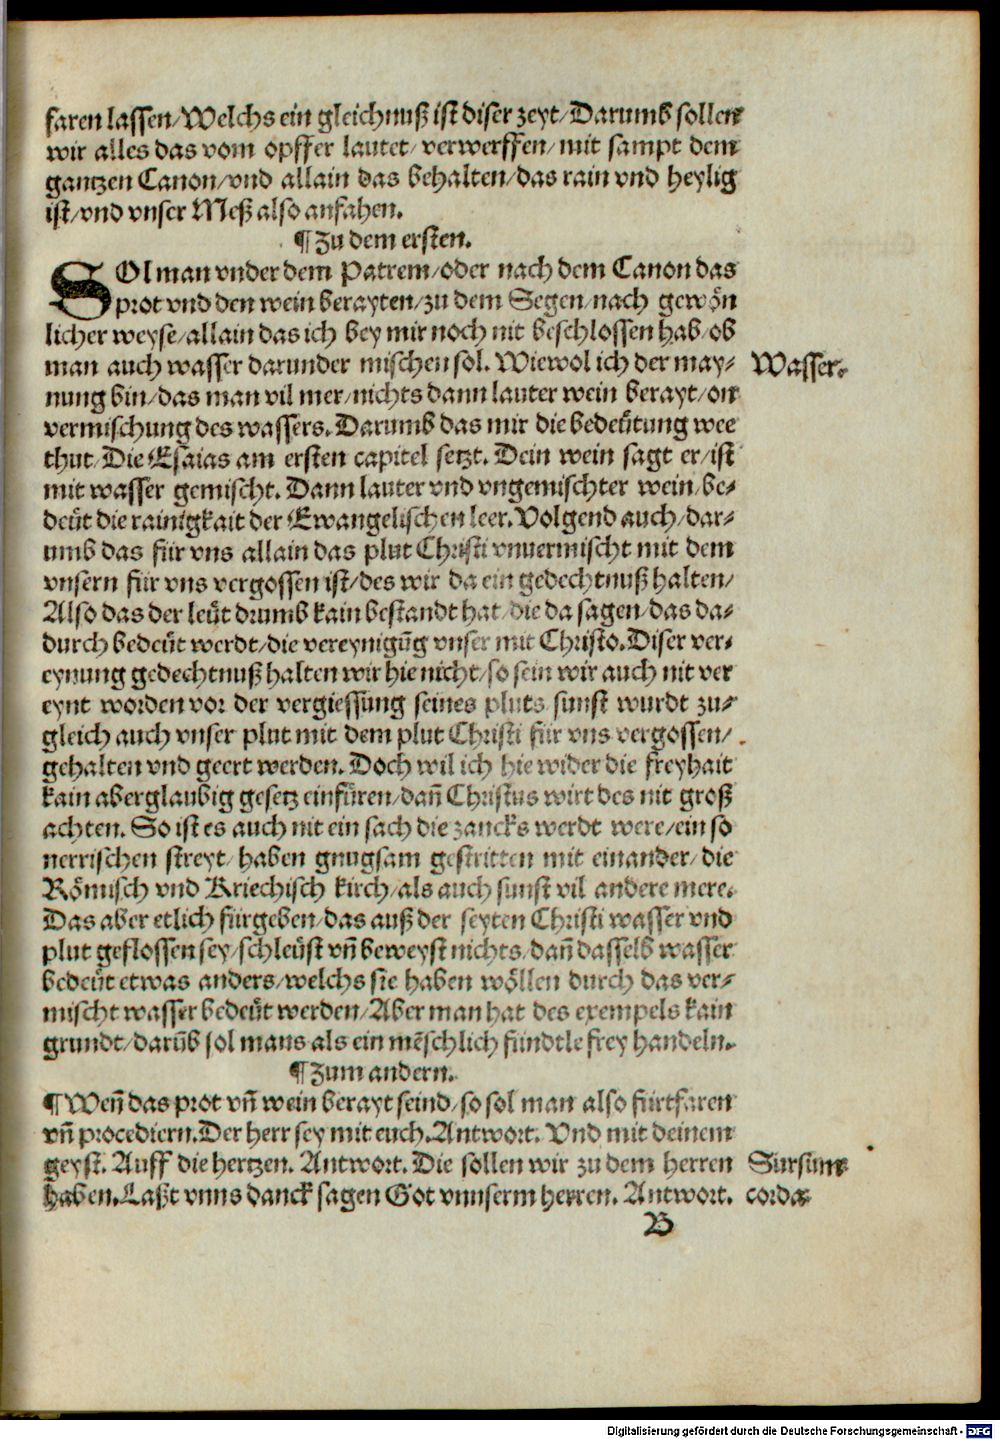 faren lassen/Welchs ein gleichnuß ist diser zeyt/Darumb sollen
wir alles das vom opffer lautet/verwerffen/mit sampt dem
gantzen Canon/vnd allain das behalten/das rain vnd heylig
ist/vnd vnser Meß also anfahen.
¶Zu dem ersten.
SOl man vnder dem Patrem/oder nach dem Canon das
prot vnd den wein berayten/zu dem Segen/nach gewoͤn
licher weyse/allain das ich bey mir noch nit beschlossen hab/ob
man auch wasser darunder mischen sol. Wiewol ich der may-
Wasser.
nung bin/das man vil mer/nichts dann lauter wein berayt/on
vermischung des wassers. Darumb das mir die bedeuͤtung wee
thut/Die Esaias am ersten capitel setzt. Dein wein sagt er/ist
mit wasser gemischt. Dann lauter vnd vngemischter wein/be-
deuͤt die rainigkait der Ewangelischen leer. Volgend auch/dar-
umb das für vns allain das plut Christi vnuermischt mit dem
vnsern für vns vergossen ist/des wir da ein gedechtnuß halten/
Also das der leuͤt drumb kain bestandt hat/die da sagen/das da-
durch bedeuͤt werdt/die vereynigūg vnser mit Christo. Diser ver-
eynung gedechtnuß halten wir hie nicht/so sein wir auch nit ver
eynt worden vor der vergiessung seines pluts sunst wurdt zu-
gleich auch vnser plut mit dem plut Christi für vns vergossen/
gehalten vnd geert werden. Doch wil ich hie wider die freyhait
kain aberglaubig gesetz einfuͤren/dañ Christus wirt des nit groß
achten. So ist es auch nit ein sach die zancks werdt were/ein so
nerrischen streyt/haben gnugsam gestritten mit einander/die
Roͤmisch vnd Kriechisch kirch/als auch sunst vil andere mere.
Das aber etlich fürgeben/das auß der seyten Christi wasser vnd
plut geflossen sey/schleuͤst vñ beweyst nichts/dañ dasselb wasser
bedeuͤt etwas anders/welchs sie haben woͤllen durch das ver-
mischt wasser bedeuͤt werden/Aber man hat des exempels kain
grundt/darūb sol mans als ein mēschlich fündtle frey handeln.
¶Zum andern.
¶Weñ das prot vñ wein berayt seind/so sol man also fürtfaren
vñ procediern. Der herr sey mit euch. Antwort. Vnd mit deinem
geyst. Auff die hertzen. Antwort. Die sollen wir zu dem herren
Sursūm
haben. Laßt vnns danck sagen Got vnnserm herren. Antwort.
corda
B
Digitalisierung gefördert durch die Deutsche Forschungsgemeinschaft - DFG